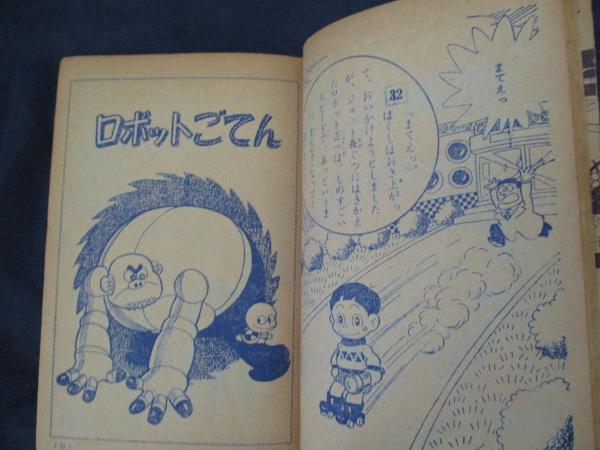 ロボットごてん
まてえっ
32
「まてえっ。」
はくしはおき上がっ
て、おいかけようとしました
が、ジェット長ぐつにはきかえ
たロボット三ばしのすごい
スピードで、あっというま